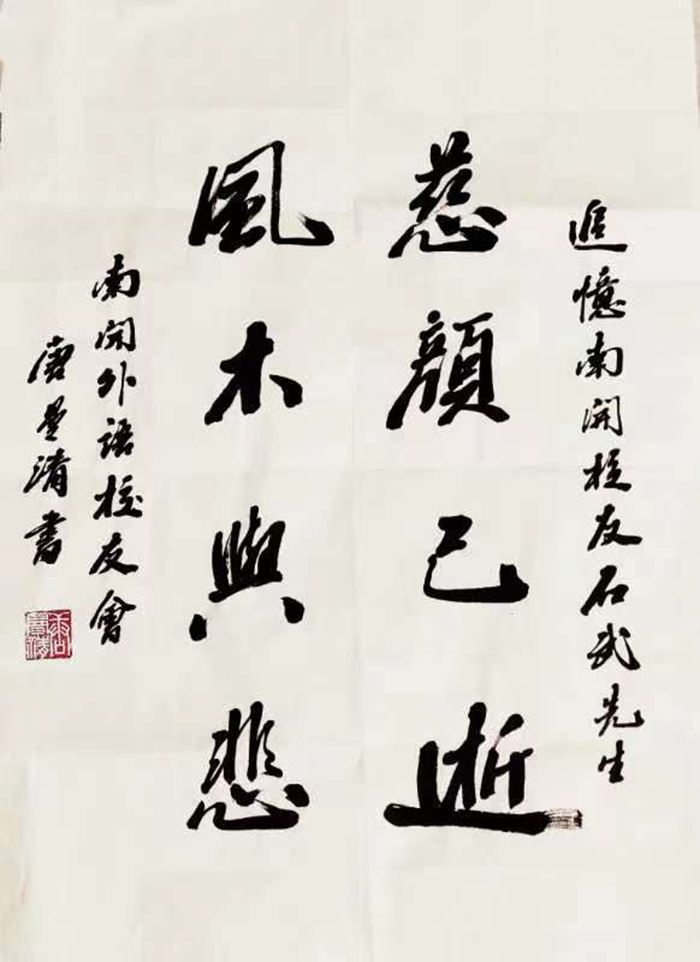 追憶南開校友石武先生
慈顔已逝
風木與悲
南開外語校友會
唐清書